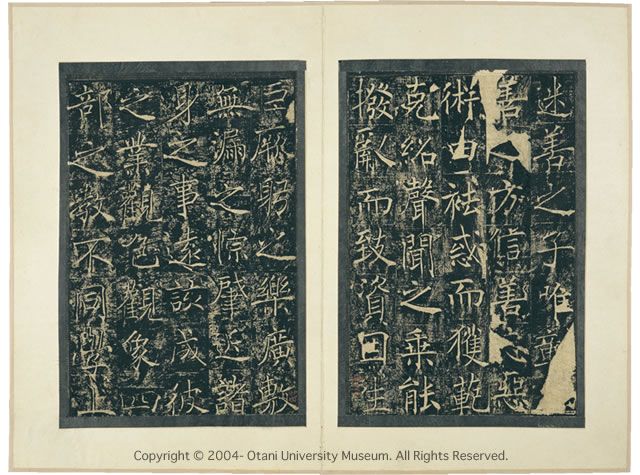 迷善之子唯
善之方信善惡
術由祛惑而獲
克紹聲聞之乘能
撥亂而致資日
厥躬之樂廣敷
無漏之肇近諸
身之事遠該成彼
之業觀色觀象四
部之教不同
Copyright © 2004- Otani University Museum. All Rights Reserved.